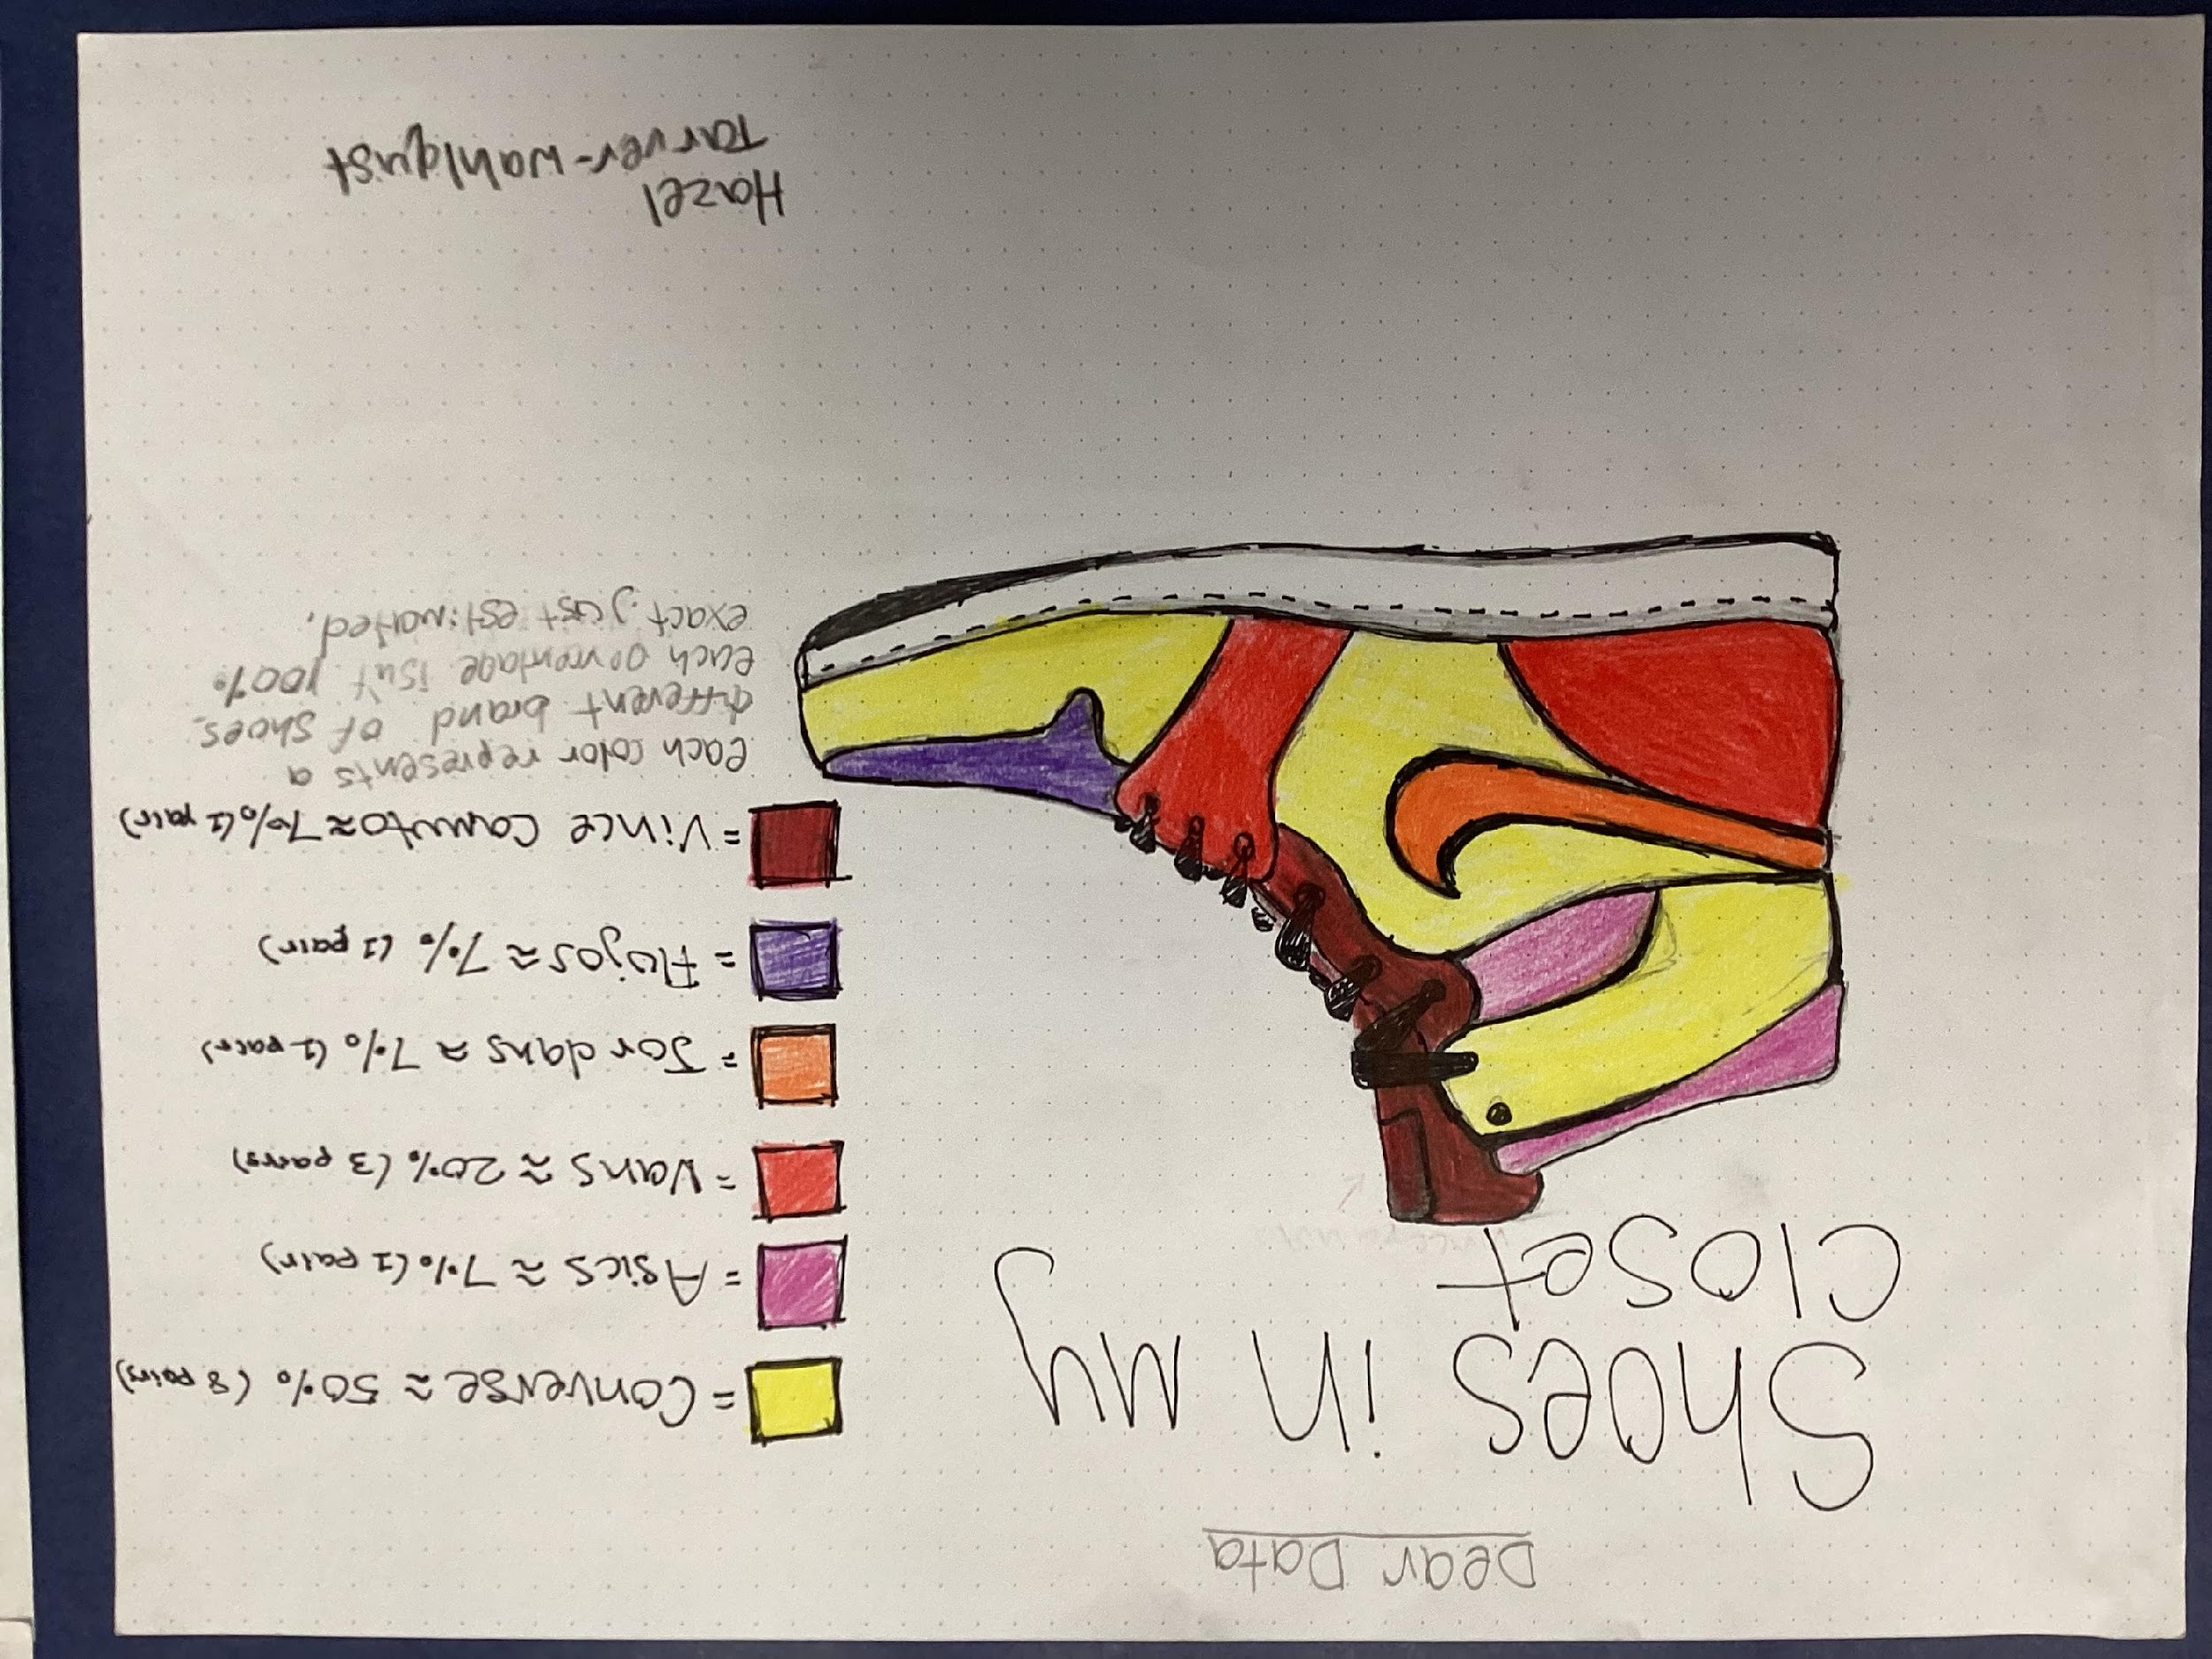 Dear Data
Shoes in my
Closet
= Converse ≈ 50% (8 pairs)
= Asics ≈ 7% (1 pair)
= Vans ≈ 20% (3 pairs)
= Jordans ≈ 7% (1 pair)
= Flujos ≈ 7% (1 pair)
= Vince Camuto ≈ 7% (1 pair)
each color represents a
different brand of shoes.
each isn't 100%
exact, just estimated.
Hazel
Tarver-wahlqust